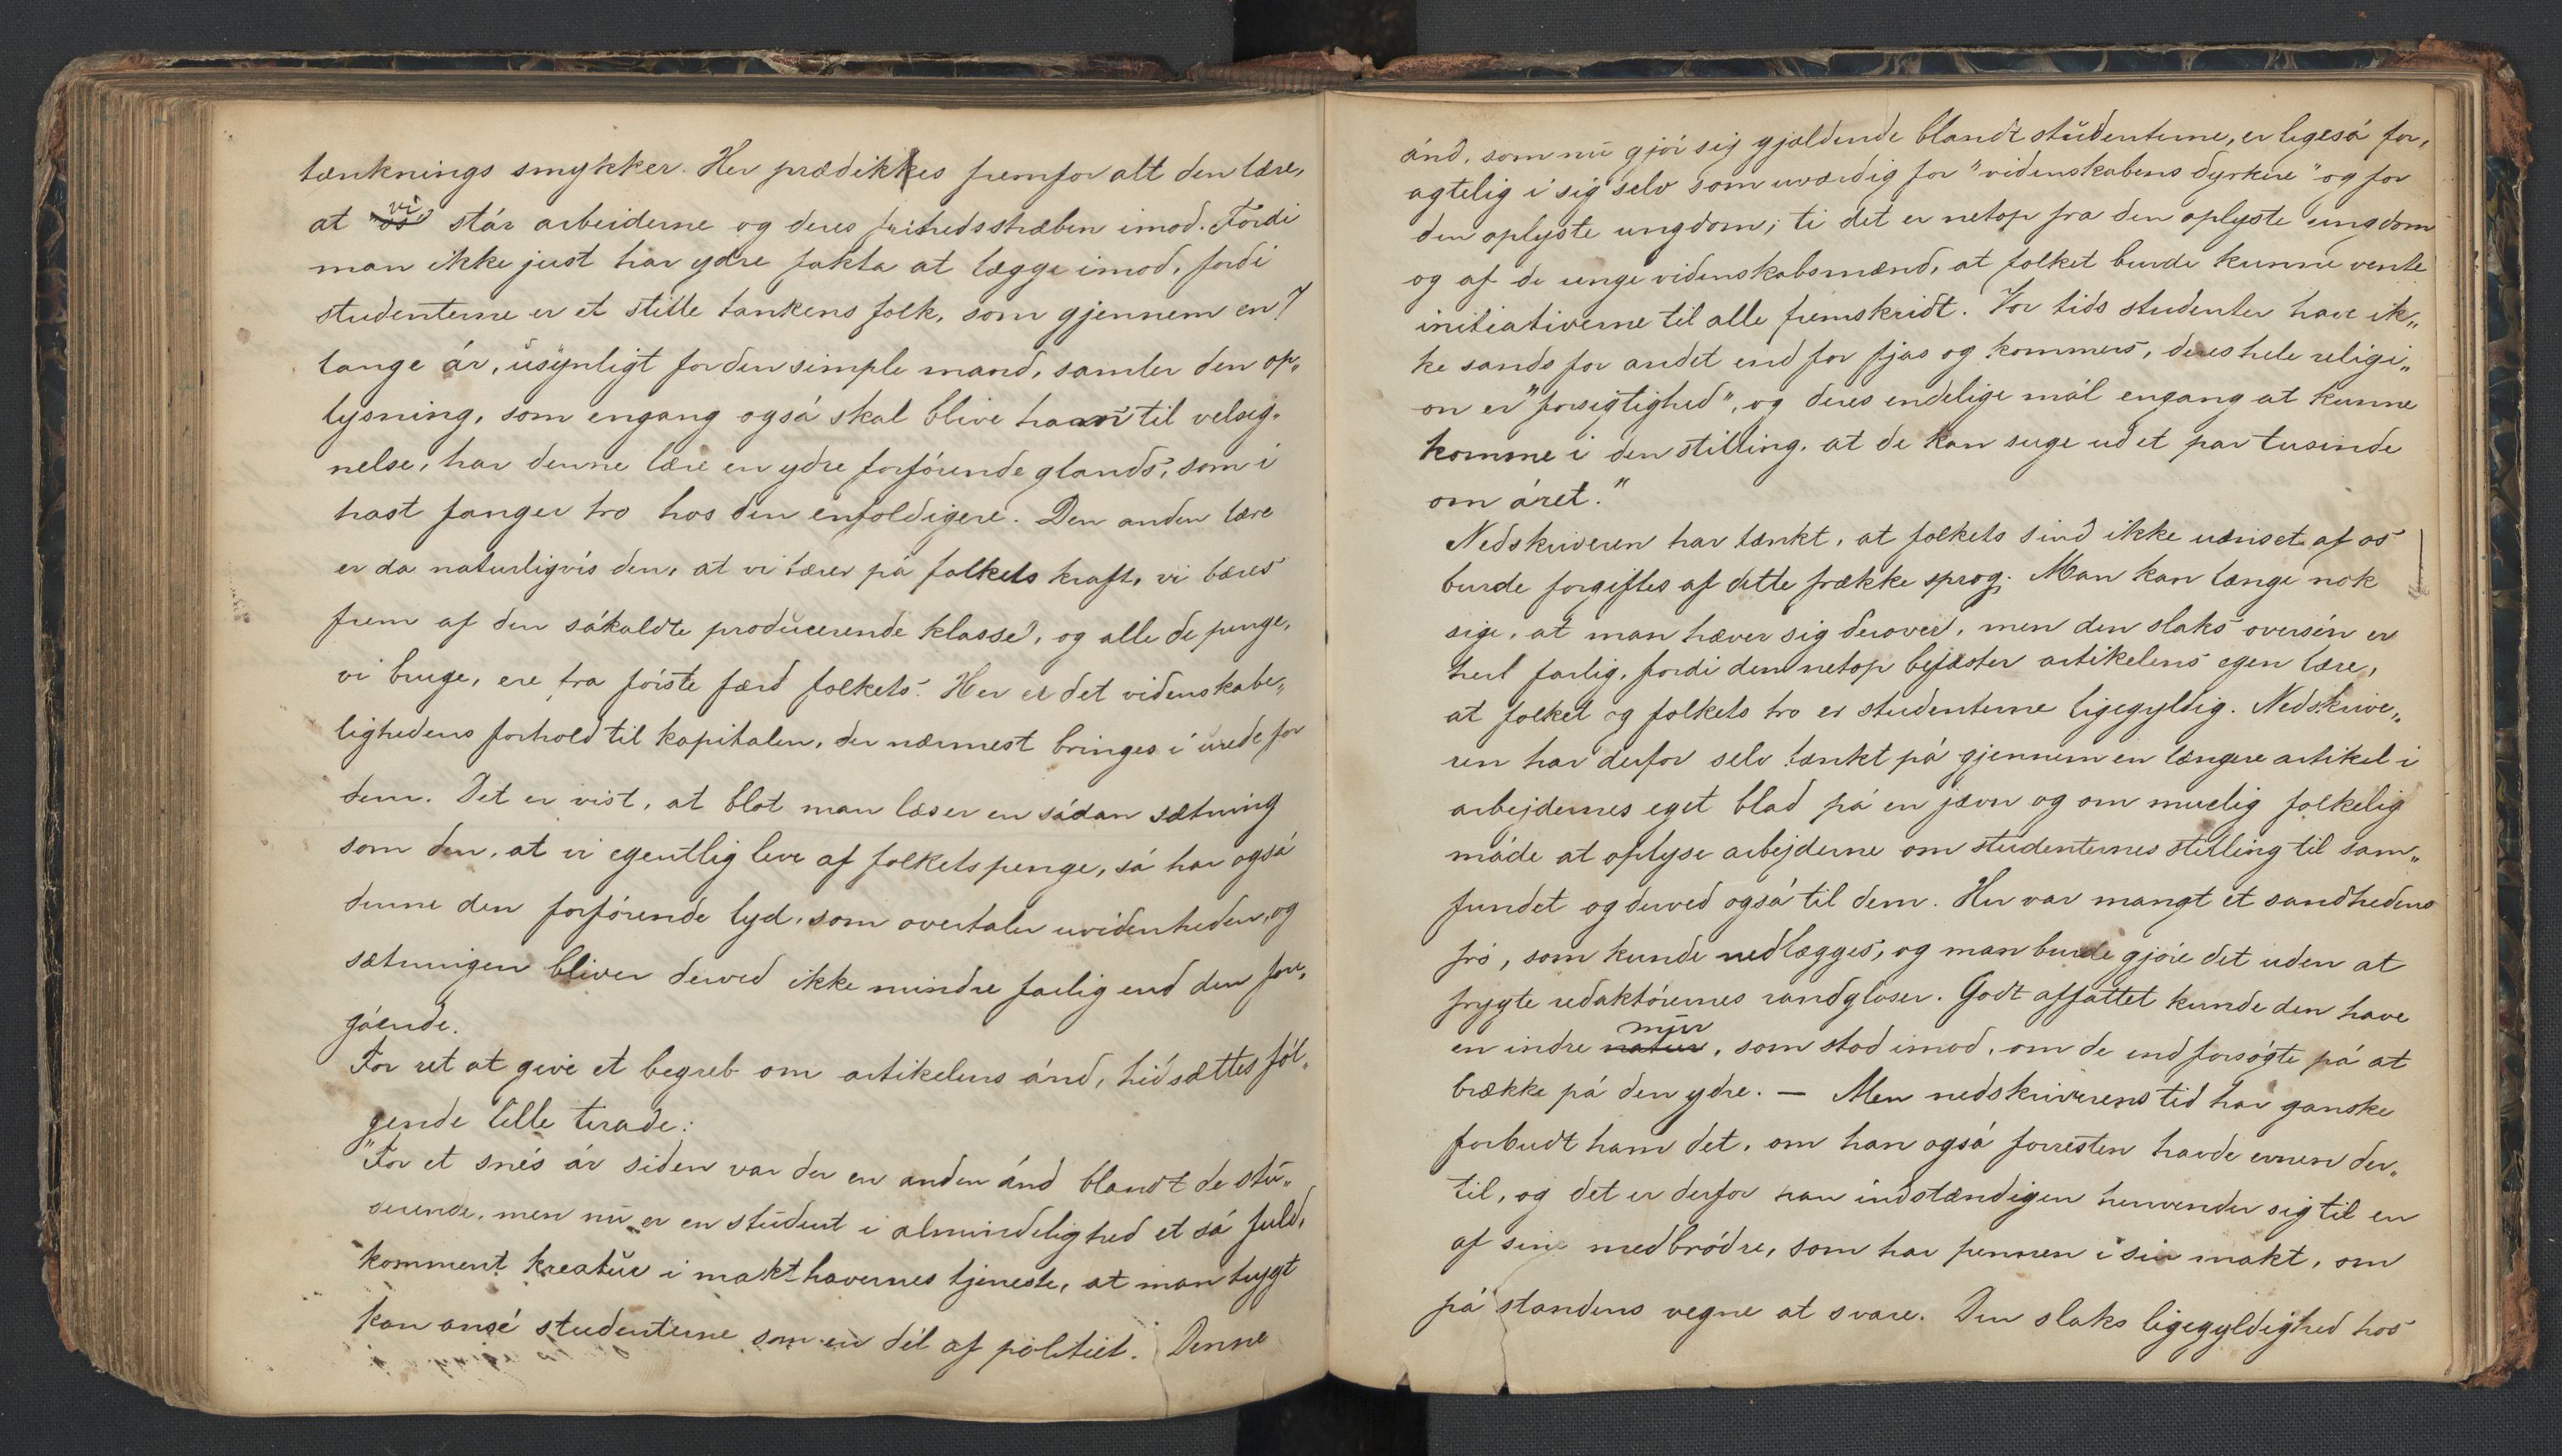 tænknings smykker. Her prædikkes fremfor alt den lære,
at vi står arbeiderne og deres frihedsstræben imod. Fordi
man ikke just har ydre fakta at lægge imod, fordi
studenterne er et stille tankens folk, som gjennem en 7
lange år, usynligt for den simple mand, samler den op„
lysning, som engang også skal blive ham til velsig„
nelse, har denne lære en ydre forførende glands, som i
hast fanger tro hos den enfoldigere. Den anden lære
er da naturligvis den, at vi tærer på folkets kraft, vi bæres
frem af den såkaldte producerende klasse, og alle de penge,
vi bruge, ere fra første færd folkets. Her er det videnskabe„
lighedens forhold til kapitalen, der nærmest bringes i urede for
dem. Det er vist, at blot man læser en sådan sætning
som den, at vi egentlig leve af folkets penge, så har også
denne den forførende lyd, som overtaler uvidenheden, og
sætningen bliver derved ikke mindre farlig end den fore„
gående.
For ret at give et begreb om artikelens ånd, hidsættes føl„
gende lille tirade:
"For et snés år siden var der en anden ånd blandt de stu„
derende, men nu er en student i almindelighed et så fuld„
komment kreatur i makthavernes tjeneste, at man trygt
kan ansé studenterne som en dél af politiet. Denne
ånd, som nu gjør sig gjældende blandt studenterne, er ligeså for„
agtelig i sig selv som uværdig for "videnskabens dyrkere" og for
den oplyste ungdom; ti det er netop fra den oplyste ungdom
og af de unge videnskabsmænd, at folket burde kunne vente
initiativerne til alle fremskridt. Vor tids studenter have ik„
ke sands for andet end for fjas og kommers, deres hele religi„
on er "forsigtighed", og deres endelige mål engang at kunne
komme i den stilling, at de kan suge ud et par tusinde
om året."
Nedskriveren har tænkt, at folkets sind ikke uænset af os
burde forgiftes af dette frække sprog. Man kan længe nok
sige, at man hæver sig derover, men den slaks oversén er
heel farlig, fordi den netop befæster artikelens egen lære,
at folket og folkets tro er studenterne ligegyldig. Nedskrive„
ren har derfor selv tænkt på gjennem en længere artikel i
arbejdernes eget blad på en jævn og om muelig folkelig
måde at oplyse arbejderne om studenternes stilling til sam„
fundet og derved også til dem. Her var mangt et sandhedens
frø, som kunde nedlægges, og man burde gjøre det uden at
frygte redaktørernes randgloser. Godt affattet kunde den have
en indre mur natur, som stod imod, om de end forsøgte på at
brække på den ydre. — Men nedskriverens tid har ganske
forbudt ham det, om han også forresten havde evnen der„
til, og det er derfor han indstændigen henvender sig til en
af sine medbrødre, som har pennen i sin makt, om
på standens vegne at svare. Den slaks ligegyldighed hos